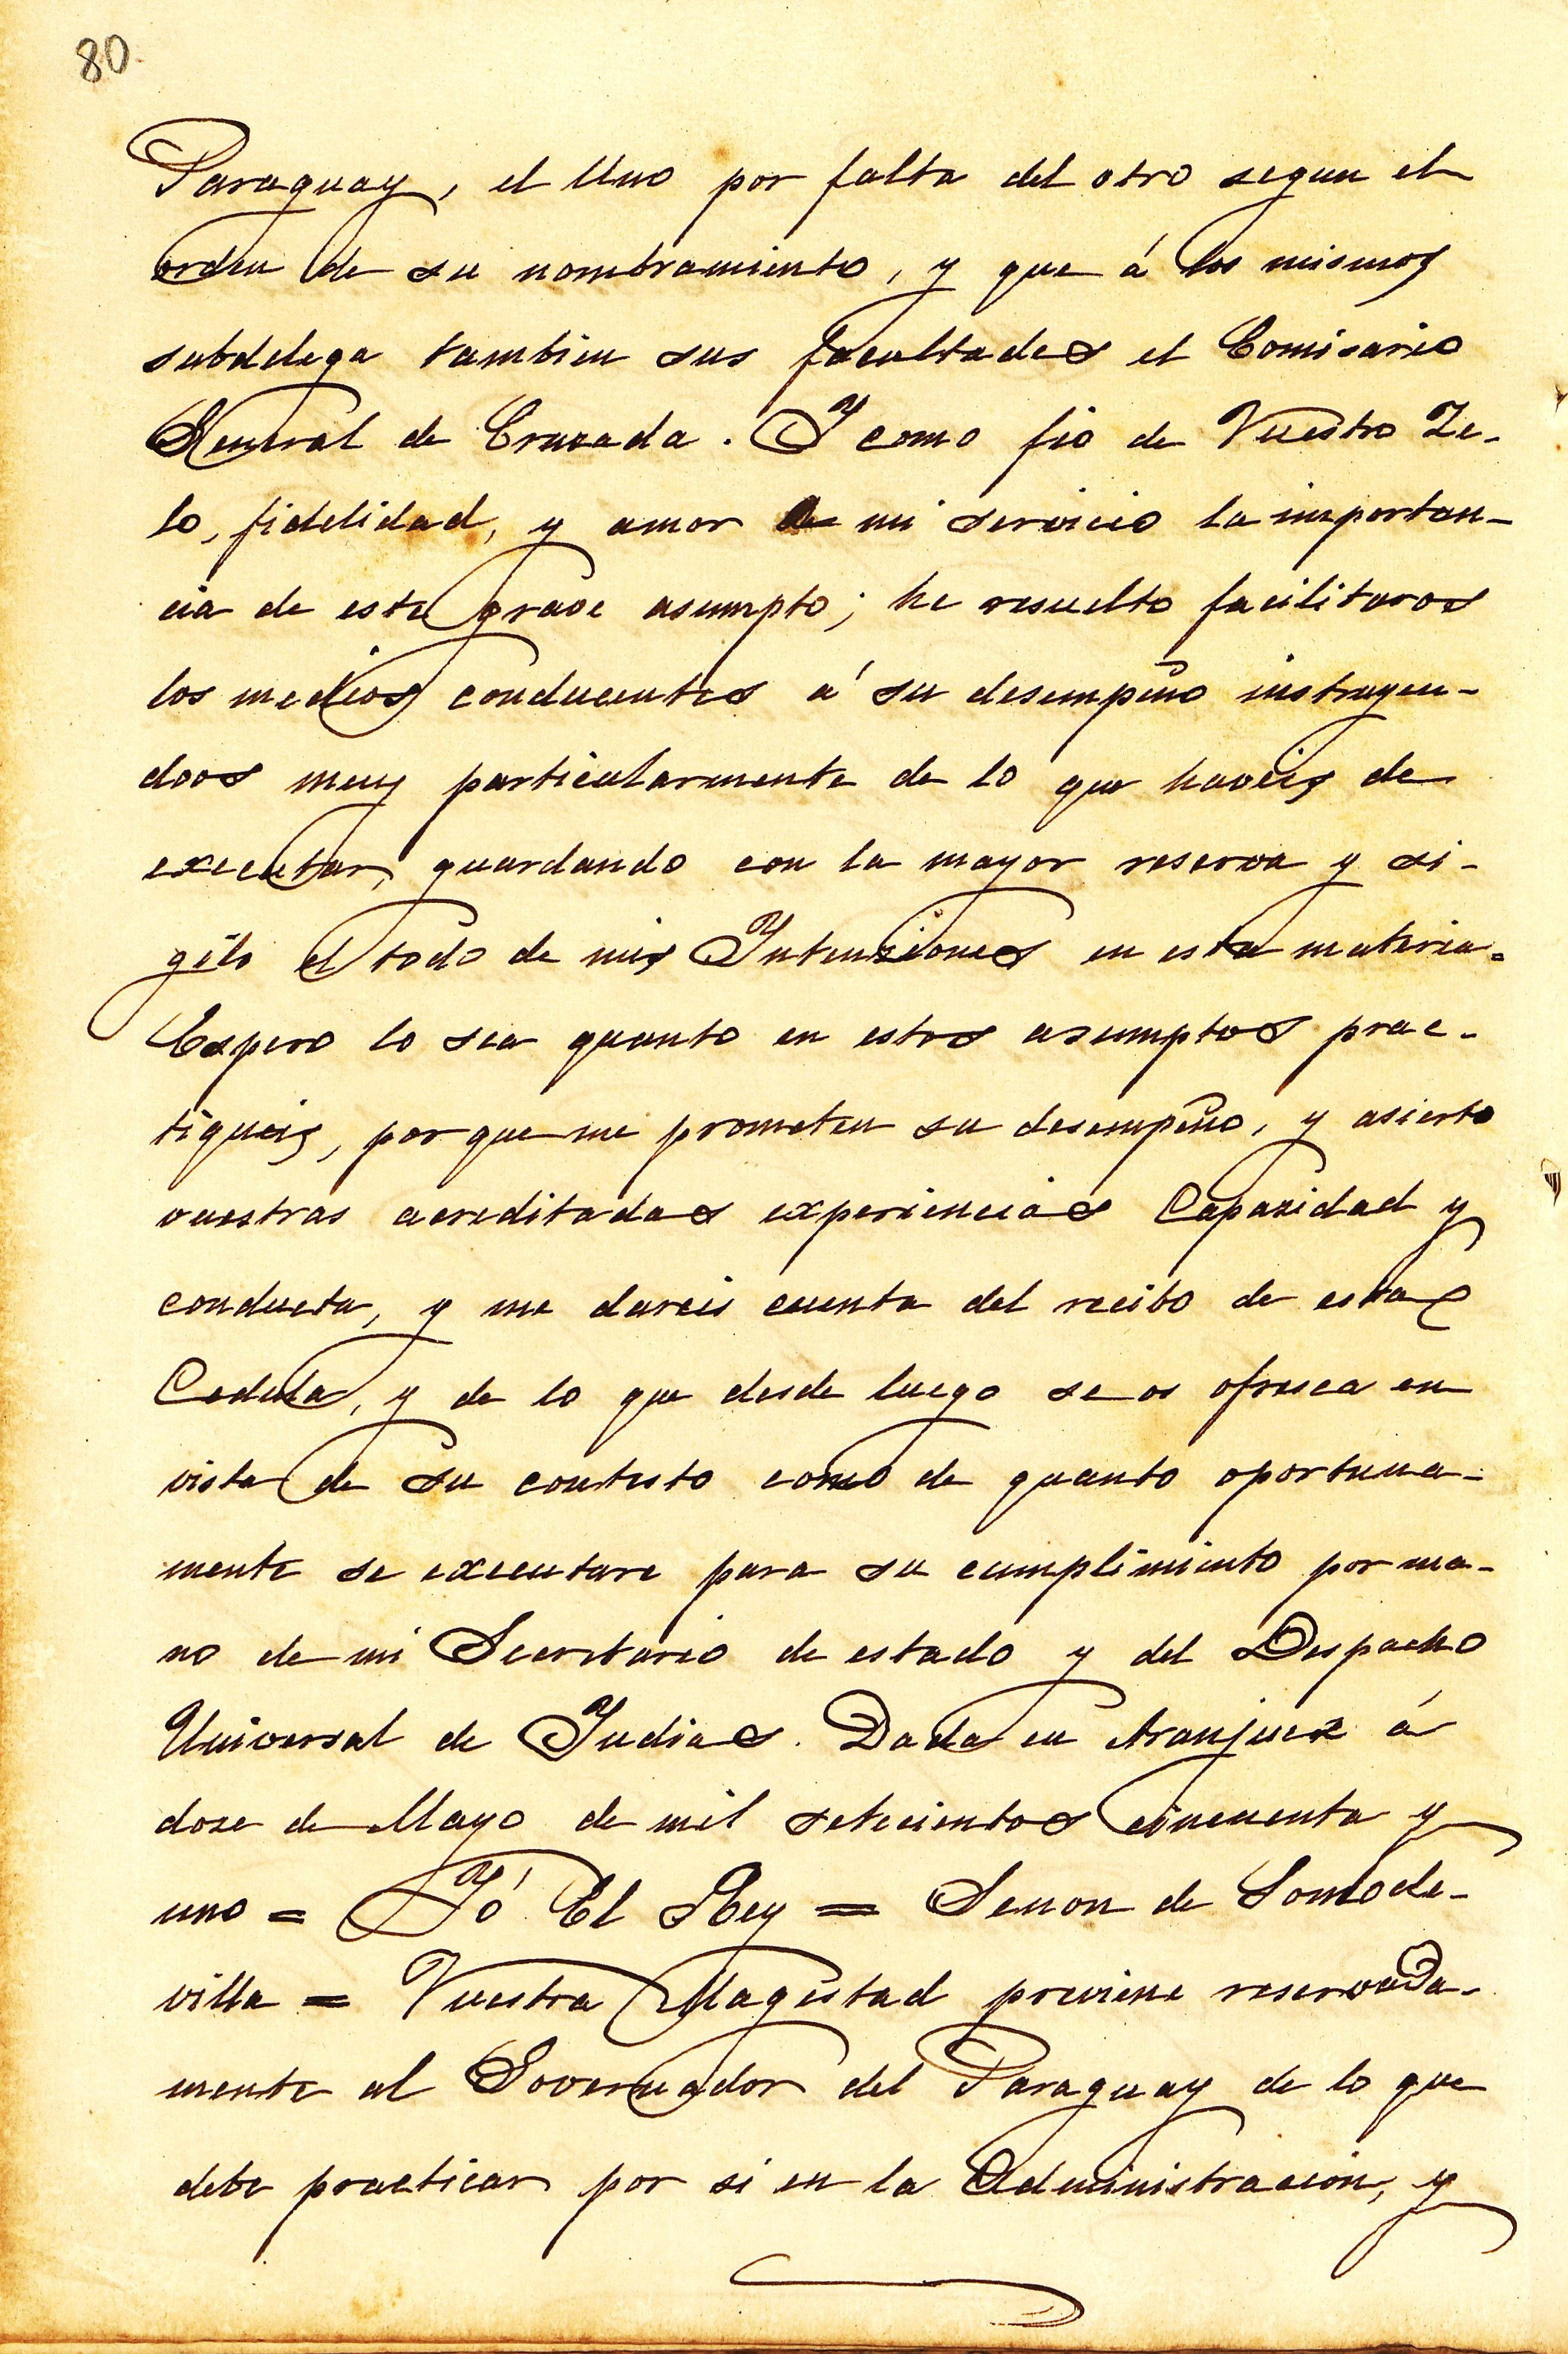 80.
Paraguay, el Uno por falta del otro segun el
orden de su nombramiento, y que á los mismos
subdelega tambien sus facultades el Comisario
General de Cruzada. Y como fio de Vuestro Ze-
lo, fidelidad, y amor a mi servicio la importan-
cia de este grave asumpto; he resuelto facilitaros
los medios conducentes á su desempeño instruyen-
doos muy particularmente de lo que haveis de
executar, guardando con la mayor reserva y si-
gilo el todo de mis Intenziones en esta materia.
Espero lo sea quanto en estos asumptos prac-
tiqueis, porque me prometen su desempeño, y asierto
vuestras acreditadas experiencias Capazidad y
conducta, y me dareis cuenta del recibo de esta
Cedula, y de lo que desde luego se os ofresca en
vista de su contesto como de quanto oportuna-
mente se executare para su cumplimiento por ma-
no de mi Secretario de estado y del Despacho
Universal de Indias. Dada en Aranjuez á
doze de Mayo de mil setecientos cincuenta y
uno = Yó El Rey = Senon de Somode-
villa = Vuestra Magestad previene reservada-
mente al Governador del Paraguay de lo que
debe practicar por si en la Administracion, y